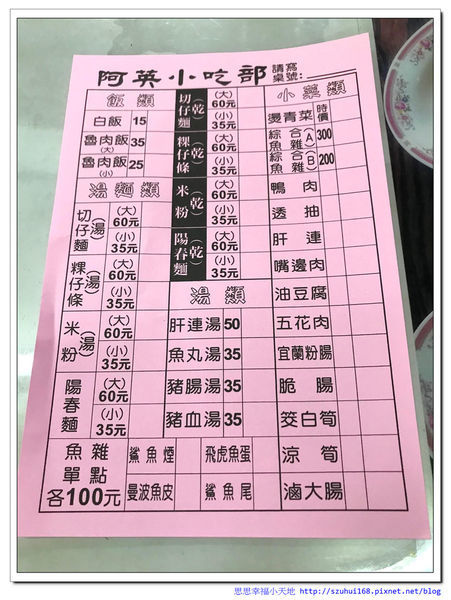 阿英小吃部 請寫桌號:
飯類
白飯 15
魯肉飯(大) 35
魯肉飯(小) 25
湯麵類
切仔麵(湯) (大)60元 (小)35元
粿仔條(湯) (大)60元 (小)35元
米粉(湯) (大)60元 (小)35元
陽春麵(湯) (大)60元 (小)35元
切仔麵(乾) (大)60元 (小)35元
粿仔條(乾) (大)60元 (小)35元
米粉(乾) (大)60元 (小)35元
陽春麵(乾) (大)60元 (小)35元
湯類
肝連湯 50
魚丸湯 35
豬腸湯 35
豬血湯 35
小菜類
燙青菜 時價
綜合(A)魚雜 300
綜合(B)魚雜 200
鴨肉
透抽
肝連
嘴邊肉
油豆腐
五花肉
宜蘭粉腸
脆腸
筊白筍
涼筍
滷大腸
魚雜單點各100元
鯊魚煙
飛虎魚蛋
曼波魚皮
鯊魚尾
思思幸福小天地 http://szuhui168.pixnet.net/blog